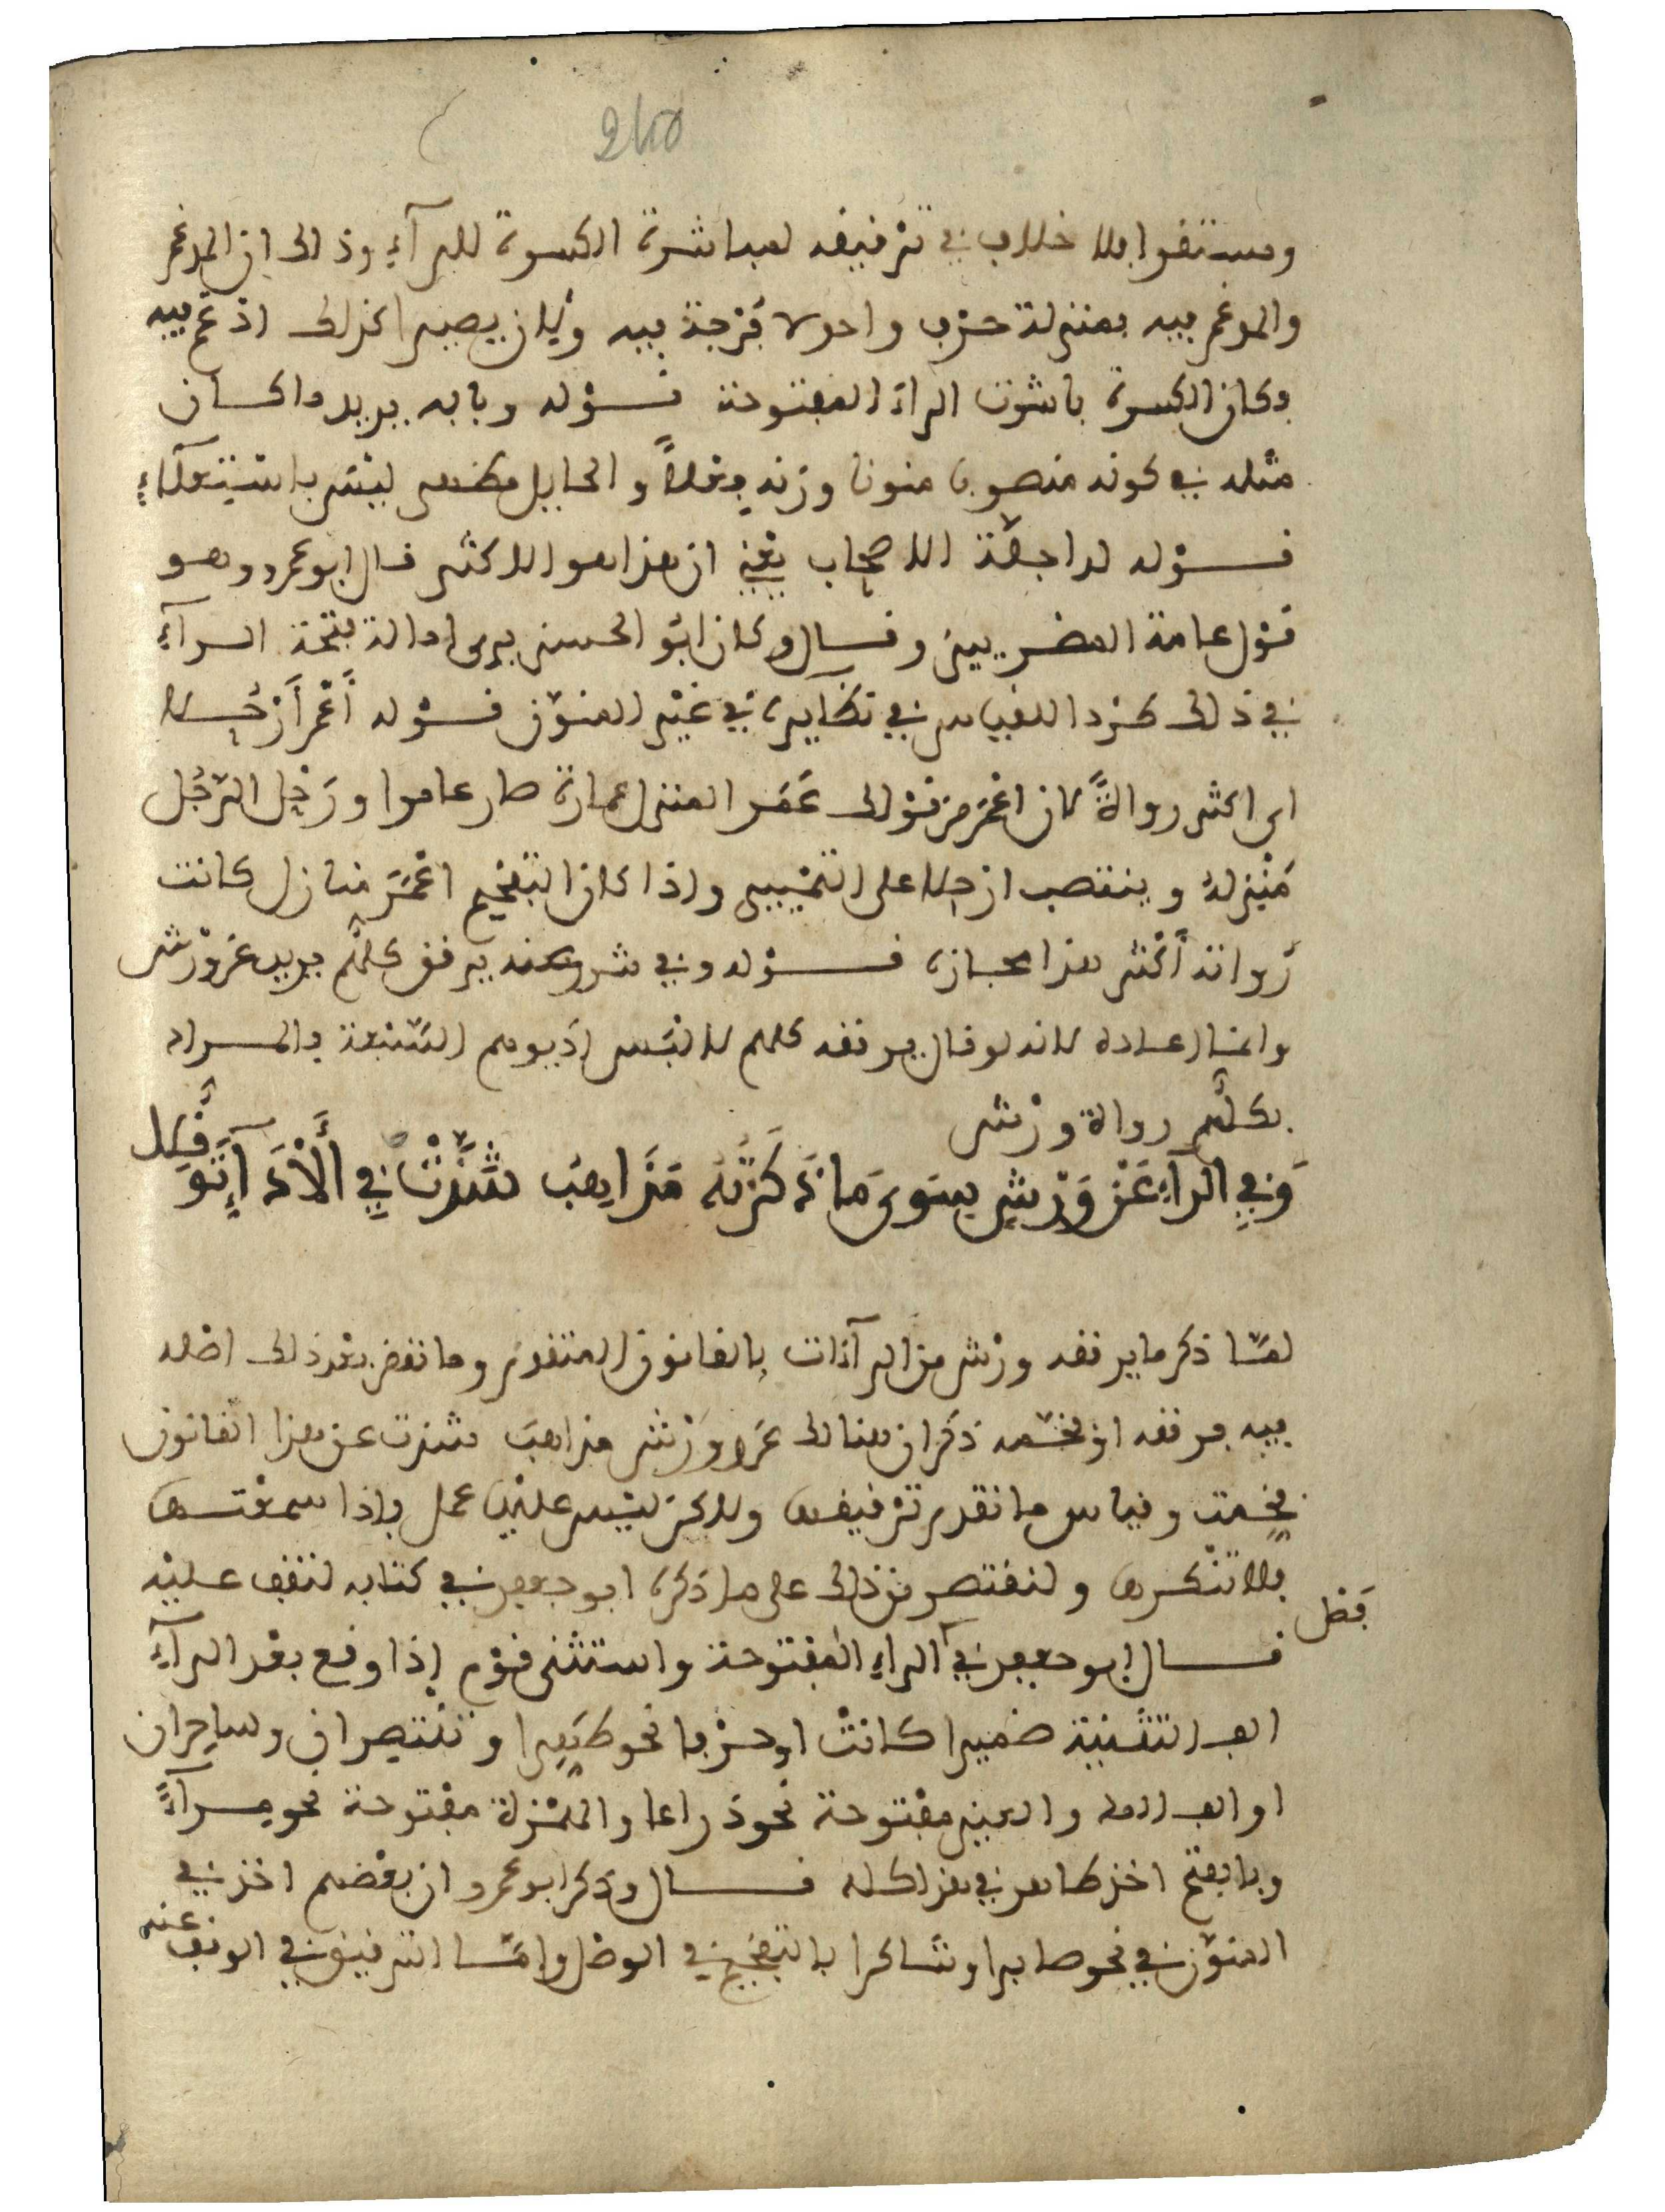 240
ومستقرا فلا خلاف في ترقيقه لمباشرة الكسرة للراء وذلك ان المدغم
والمدغم فيه بمنزلة حرف واحد فرجة فيه
فكان الكسرة باشرت الراء المفتوحة قوله وبابه يريد ما كان
مثله في كونه منصوبا منونا وزنه فعلاً والحايل مظهر ليس باستعلاء
قوله لدا جلة الاصحاب يعني ان هذا هو الاكثر قال ابو عمرو وهو
قول عامة المصريين وقال وكان ابو الحسن يرى امالة فتحة الراء
في ذلك طردا للقياس في نظايره في غير المنون قوله أعمر أرحلا
اي اكثر رواة كان اعمر من قولك عمر المنزل عمارة صار عامرا ورحل الرجل
منزله وينتصب ارحلا على التمييز واذا كان التفخيم اعمر منازل كانت
رواته أكثر هذا مجازه قوله وفي شرر عنه يرقق كلهم يريد عن ورش
وانما اعاده لانه لو قال يرقق كلهم لالتبس اذ يوهم السبعة والمراد
بكلهم رواة ورش
وَفِي الراءِ عَنْ وَرْشٍ سِوَى مَا ذَكَرْتُهُ مَذَاهِبُ شَذَّتْ فِي الْأَدَاءِ تَوَقُّلَا
لمّا ذكر ما يرققه ورش من الراءات بالقانون المتقدم وما نقض بعد ذلك اصله
فيه مرققه او فخمه ذكر ان هنالك عن ورش مذاهب شذت عن هذا القانون
فخمت وقياس ما تقدم ترقيقها ولاكن ليس عليها عمل فاذا سمعتها
فلا تنكرها ولنقتصر من ذلك على ما ذكره ابو جعفر في كتابه لتقف عليه
فصل
قال ابو جعفر في الراء المفتوحة واستثنى قوم إذا وقع بعد الراء
الف التثنية ضميرا كانت او حرفا نحو طهرا وتنتصران وساحران
او الف والعين مفتوحة نحو ذراعا والهمزة مفتوحة نحو مراءً
وبالفتح اخذ طاهر في هذا كله قال وذكر ابو عمرو ان بعضهم اخذ في
المنون في نحو صابرا وشاكرا بالتفخيم في الوصل وامّا الترقيق في الوقف عنه